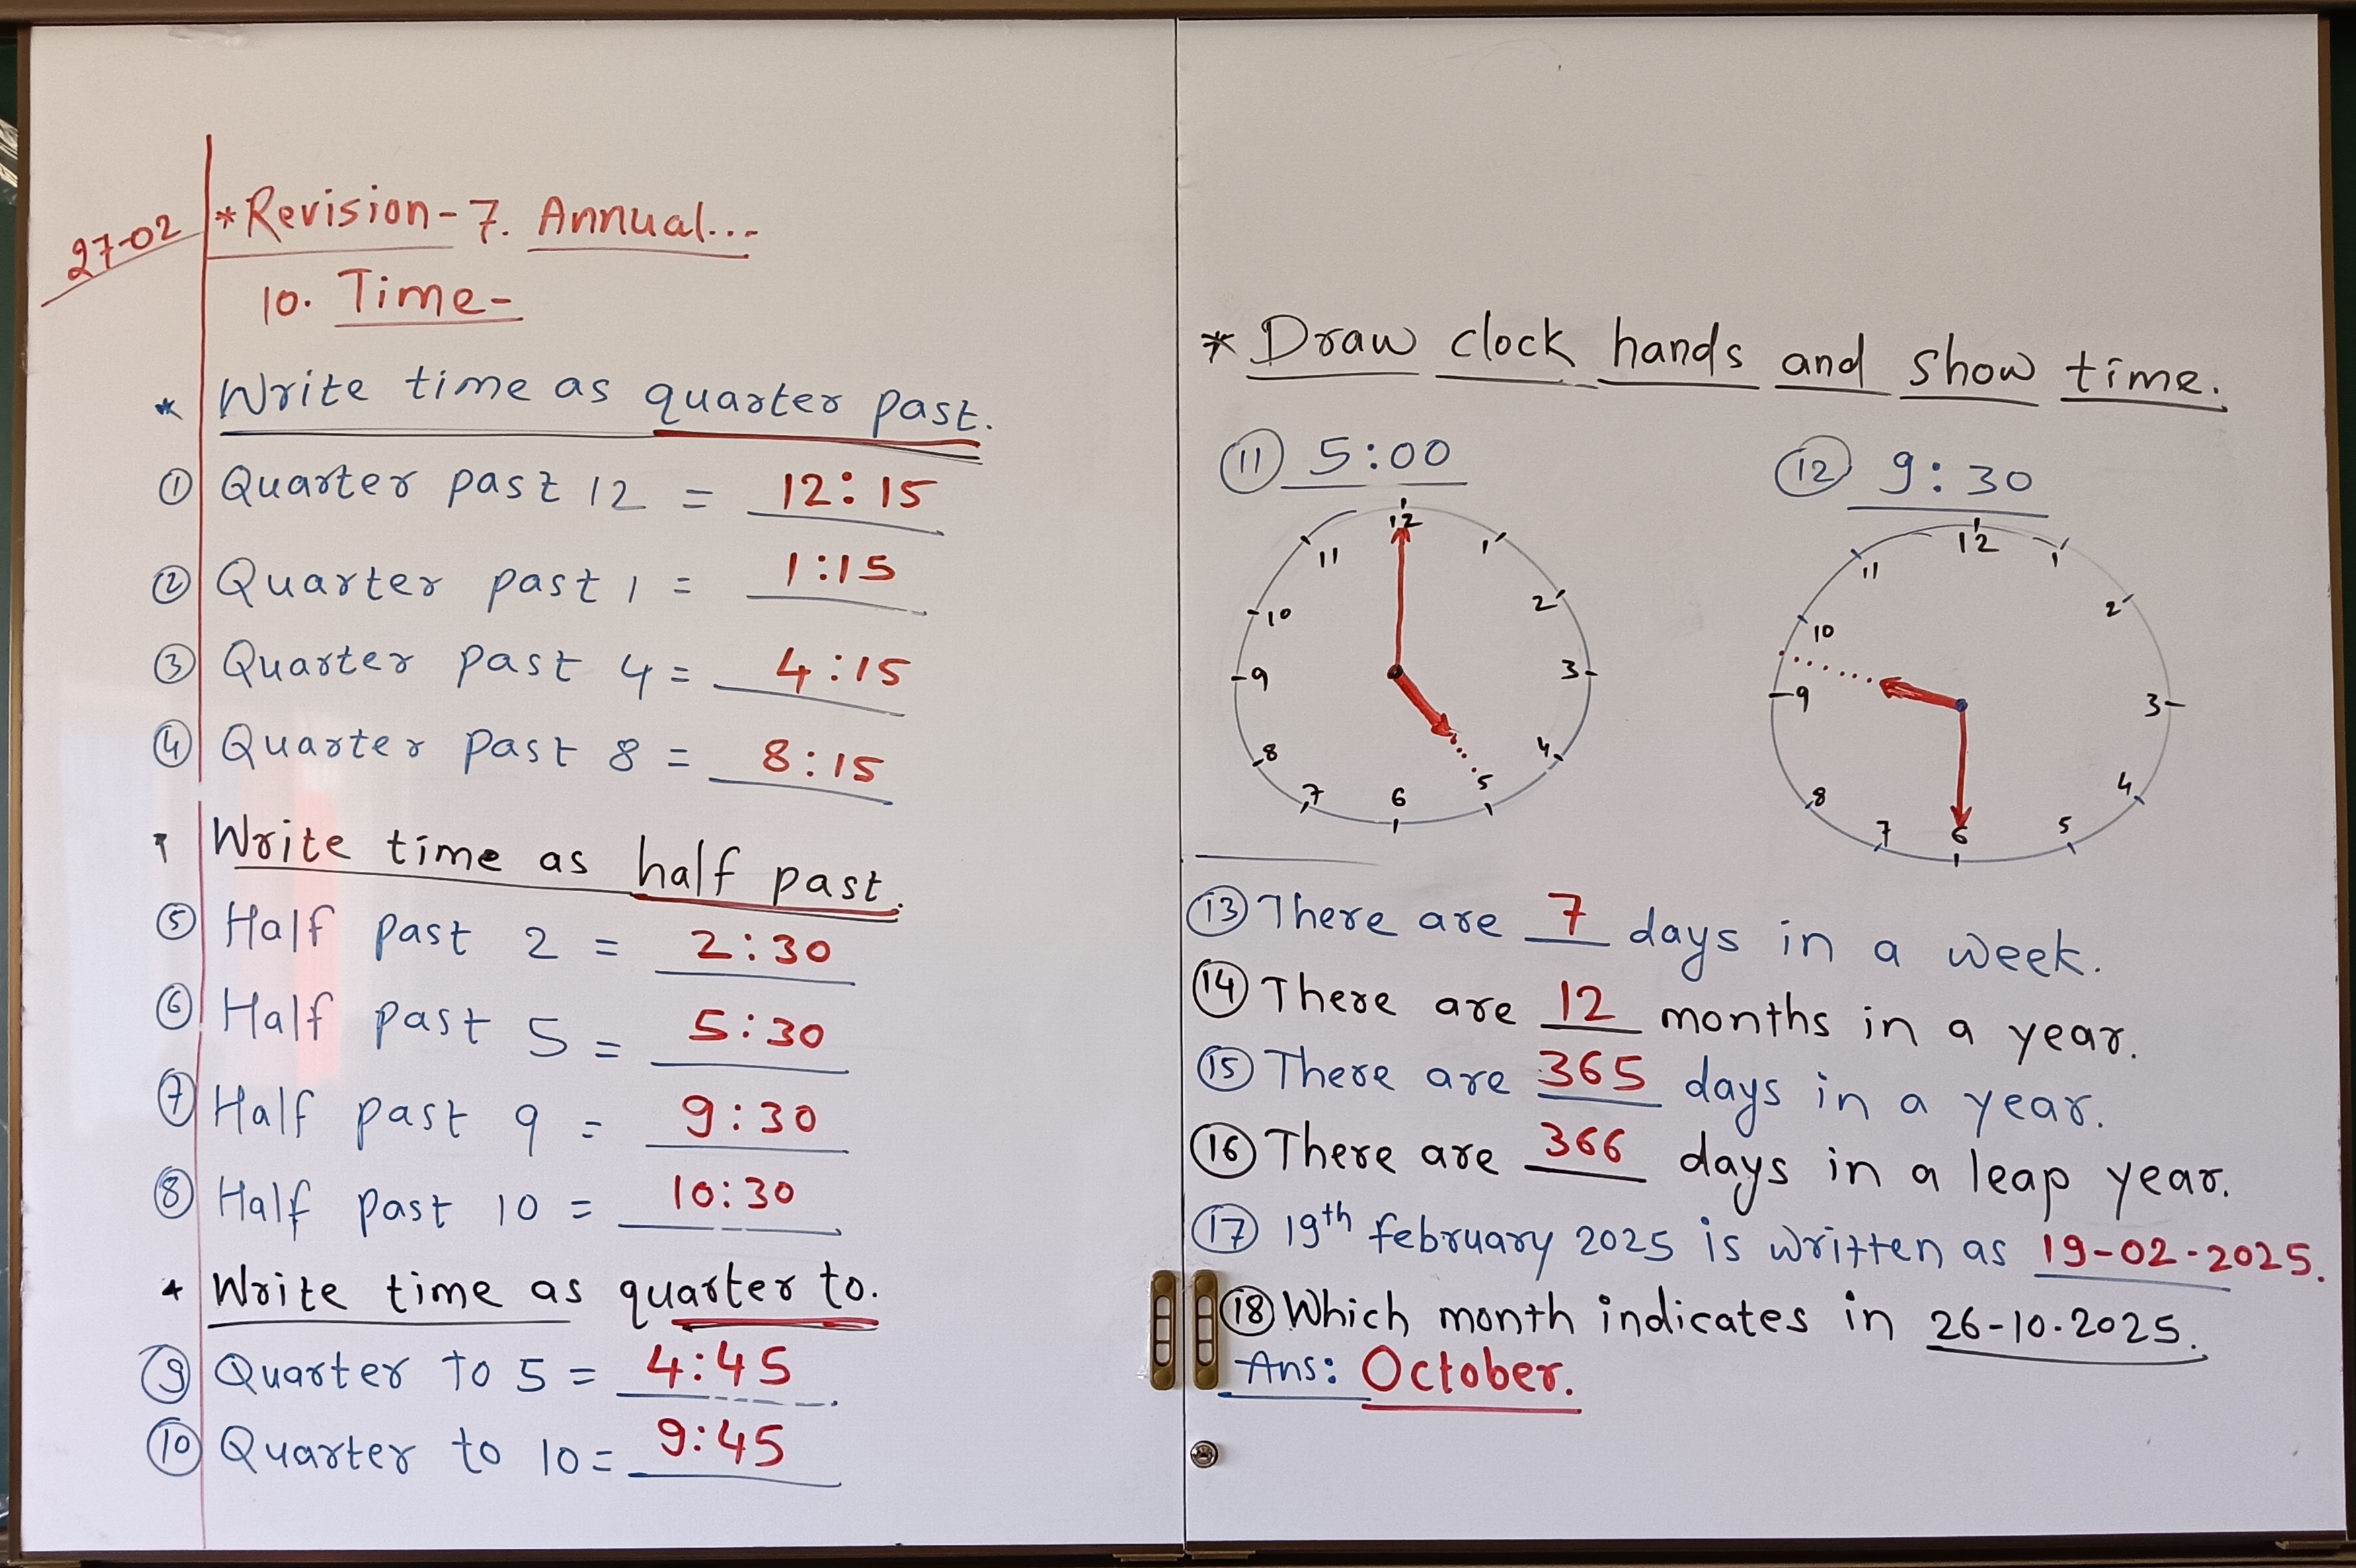 27-02
*Revision-7. Annual...
10. Time-
* Write time as quarter past.
① Quarter past 12 = 12:15
② Quarter past 1 = 1:15
③ Quarter past 4 = 4:15
④ Quarter past 8 = 8:15
* Write time as half past.
⑤ Half past 2 = 2:30
⑥ Half past 5 = 5:30
⑦ Half past 9 = 9:30
⑧ Half past 10 = 10:30
* Write time as quarter to.
⑨ Quarter to 5 = 4:45
⑩ Quarter to 10 = 9:45
* Draw clock hands and show time.
⑪ 5:00
12
1
2
3
4
5
6
7
8
9
10
11
⑫ 9:30
12
1
2
3
4
5
6
7
8
9
10
11
⑬ There are 7 days in a week.
⑭ There are 12 months in a year.
⑮ There are 365 days in a year.
⑯ There are 366 days in a leap year.
⑰ 19th february 2025 is written as 19-02-2025.
⑱ Which month indicates in 26-10-2025.
Ans: October.